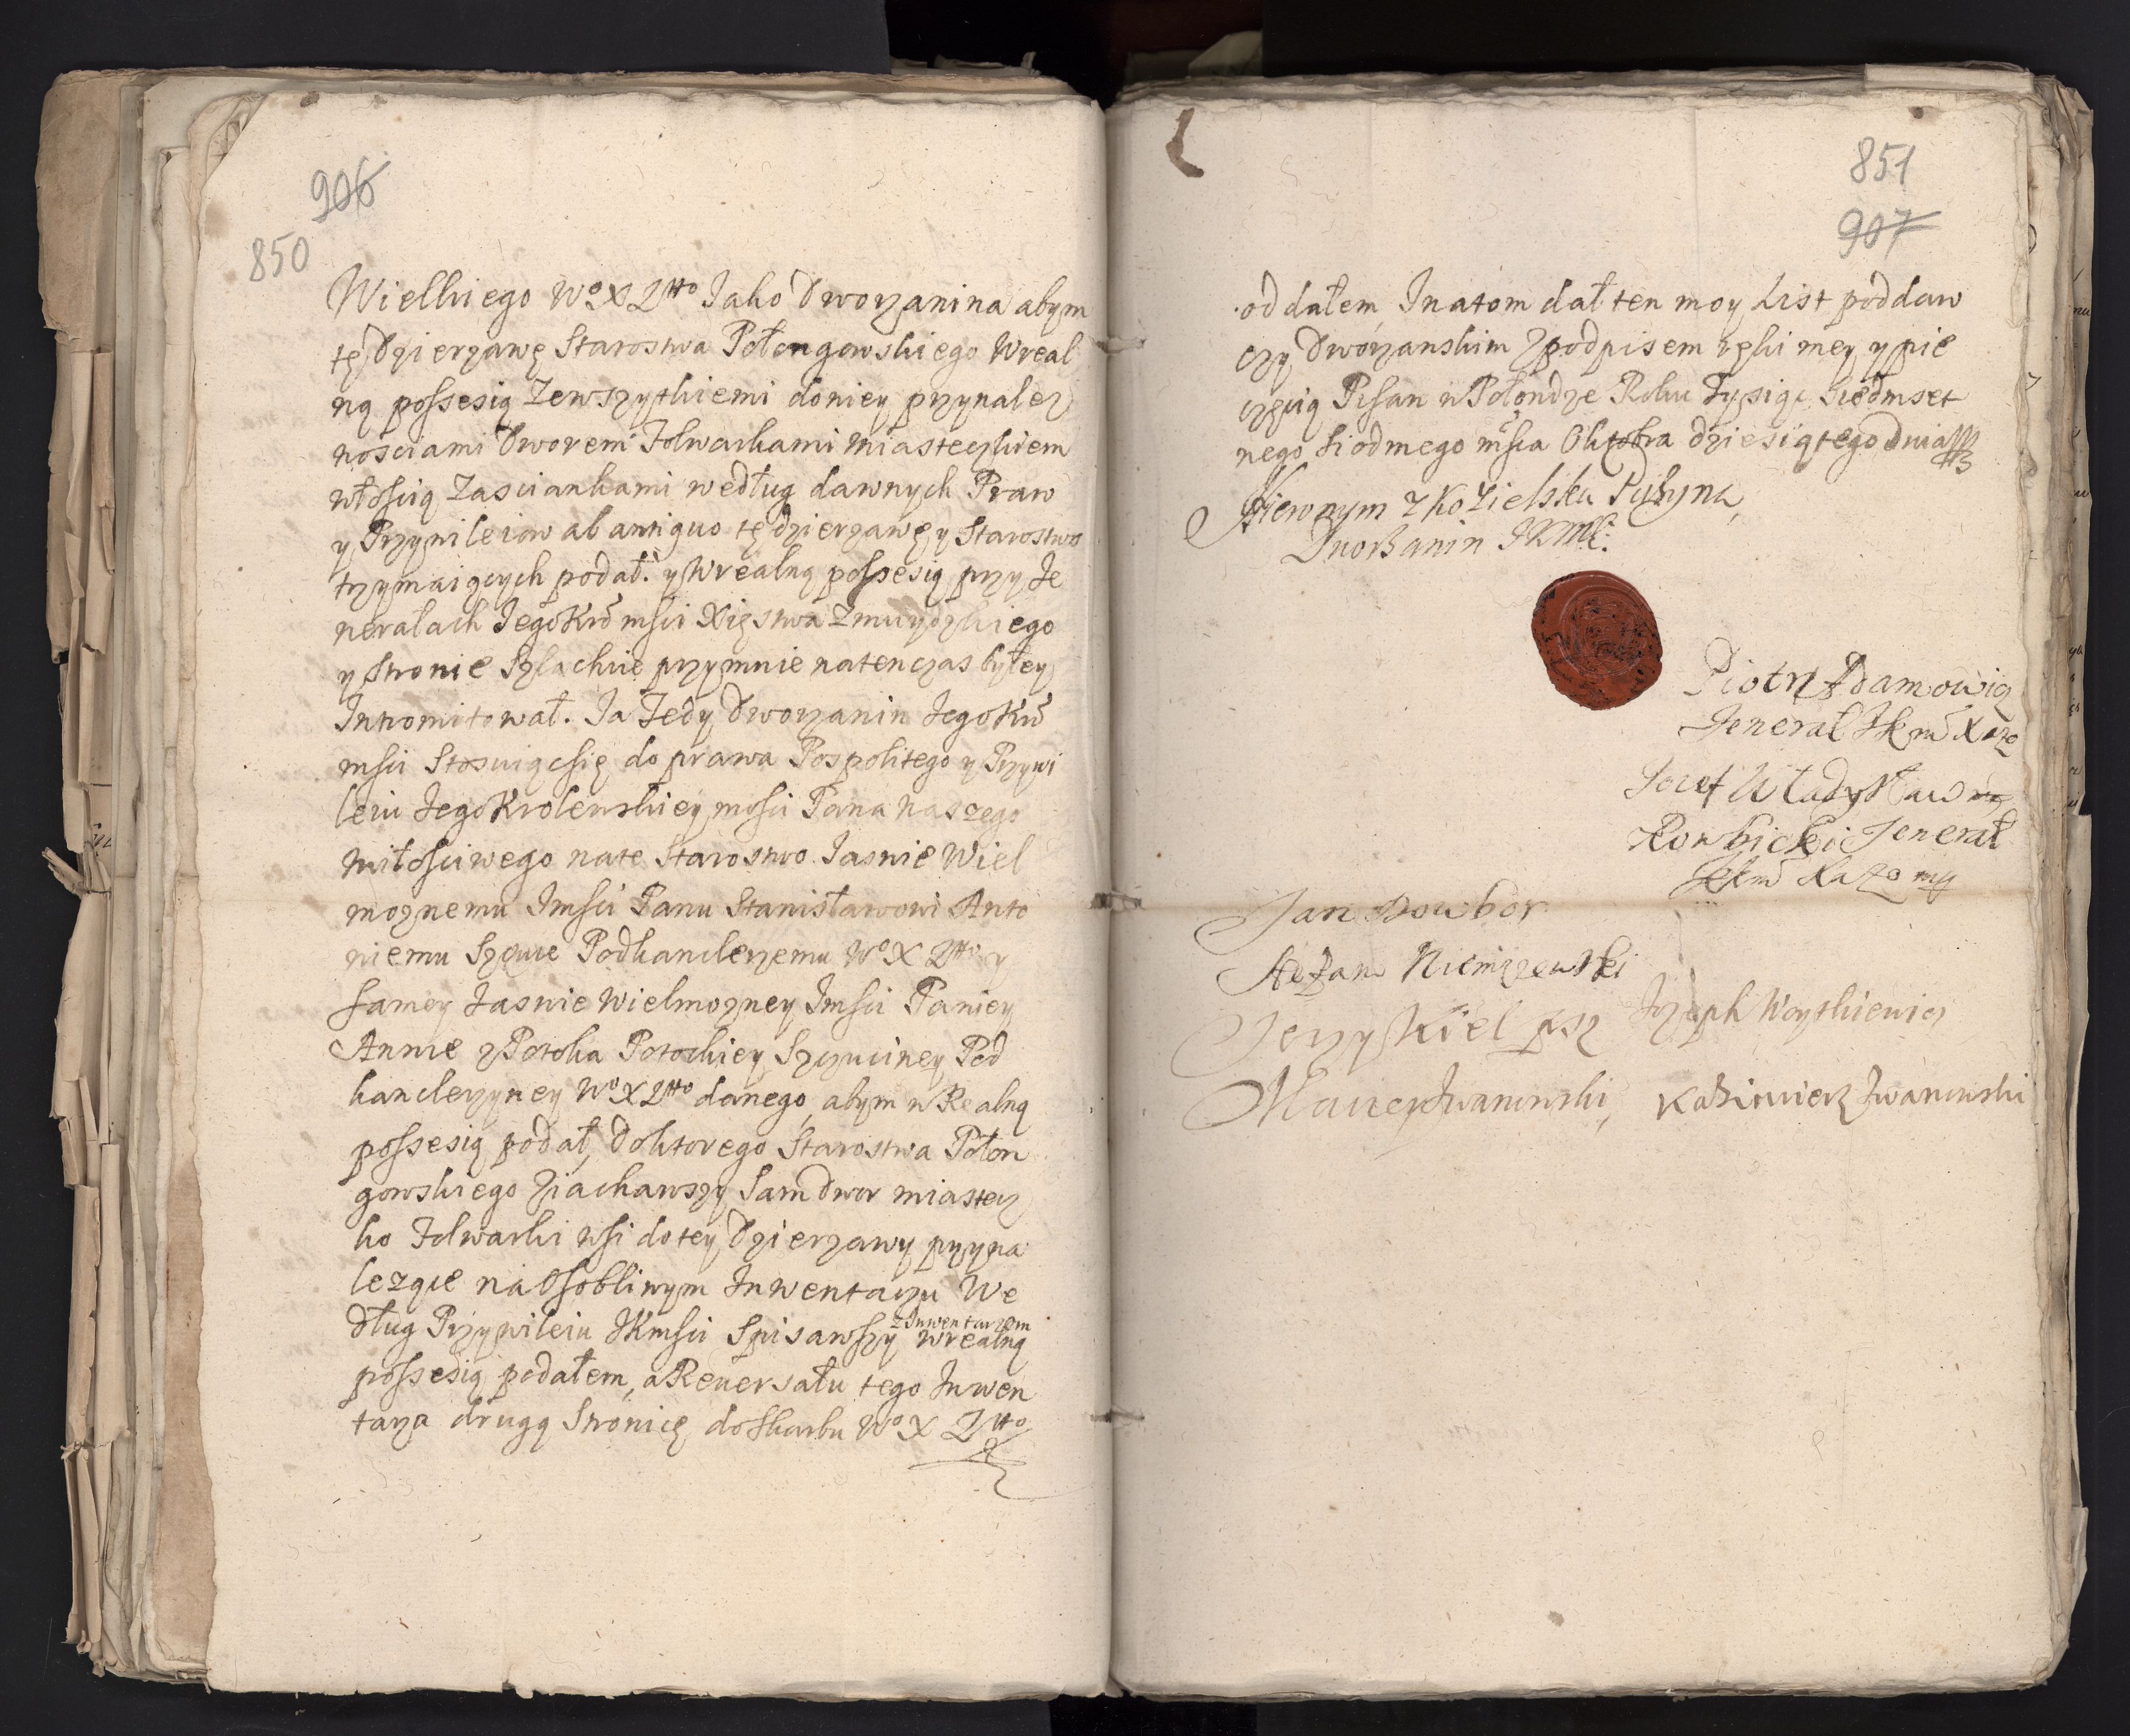 906
850
Wielkiego Wº X Lttº Jako Dworzanina abym
tę Dzierzawę Starostwa Połongowskiego Wreal
ną possesią Zewszytkiemi doniey przynalez
nosciami Dworem Folwarkami Miasteczkiem
włoscią Zasciankami według dawnych Praw
y Przywileiow ab antiquo tę dzierzawę y Starostwo
trzymaiących podał. y Wrealną possesią przy Je
nerałach Jego Kr msci Xięstwa Zmuydzkiego
y stronie Szlachcie przymnie natenczas byłey
Intromitował. Ja Tedy Dworzanin Jego Kr
msci Stosuiąc się do prawa Pospolitego y Przywi
leiu Jego Krolewskiey mosci Pana Naszego
Miłosciwego nate Starostwo Jasnie Wiel
moznemu Imsci Panu Stanisławowi Anto
niemu Szczuce Podkanclerzemu Wº X Lttº y
Samey Jasnie Wielmozney Imsci Paniey
Annie z Potoka Potockiey Szczuciney Pod
kanclerzyney Wº X Lttº danego, abym w Realną
possesią podał, Doktorego Starostwa Połon
gowskiego Ziachawszy Sam dwor miastecz
ko Folwarki wsi dotey Dzierzawy przyna
lezące na Osobliwym Inwentarzu We
dług Przywileiu JKmsci Spisawszy zInwentarzem Wrealną
possesią podałem, a Rewersału tego Inwen
tarza drugą Stronicę do Skarbu Wº X Lttº
851
907
oddałem, Inatom dał ten moy List poddaw
czy Dworzanskim zpodpisem ręki mey y pie
częcią Pisan w Połondze Roku Tysiąc Siedmset
nego Siodmego msca Oktobra dziesiątego Dnia
Hieronym z Kozielska Puzyna,
Dworzanin JKMsc:
Piotr Adamowicz
Jenerał Jkm
Jozef Władysław
Jenerał
Jkm
Jan Dowbor
Stefan Niemczewski
Jerzy Kiel
Jozeph Woytkiewicz
Maciey Iwanowski,
Kazimierz Iwanowski